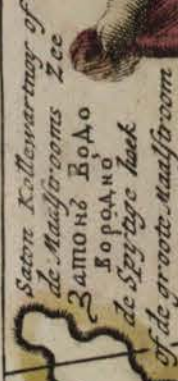 Saton Kollewartnoy of
de Maalstrooms Zee
Затонъ Водо
Вородно
de Spytige hoek
of de groote Maalstroom